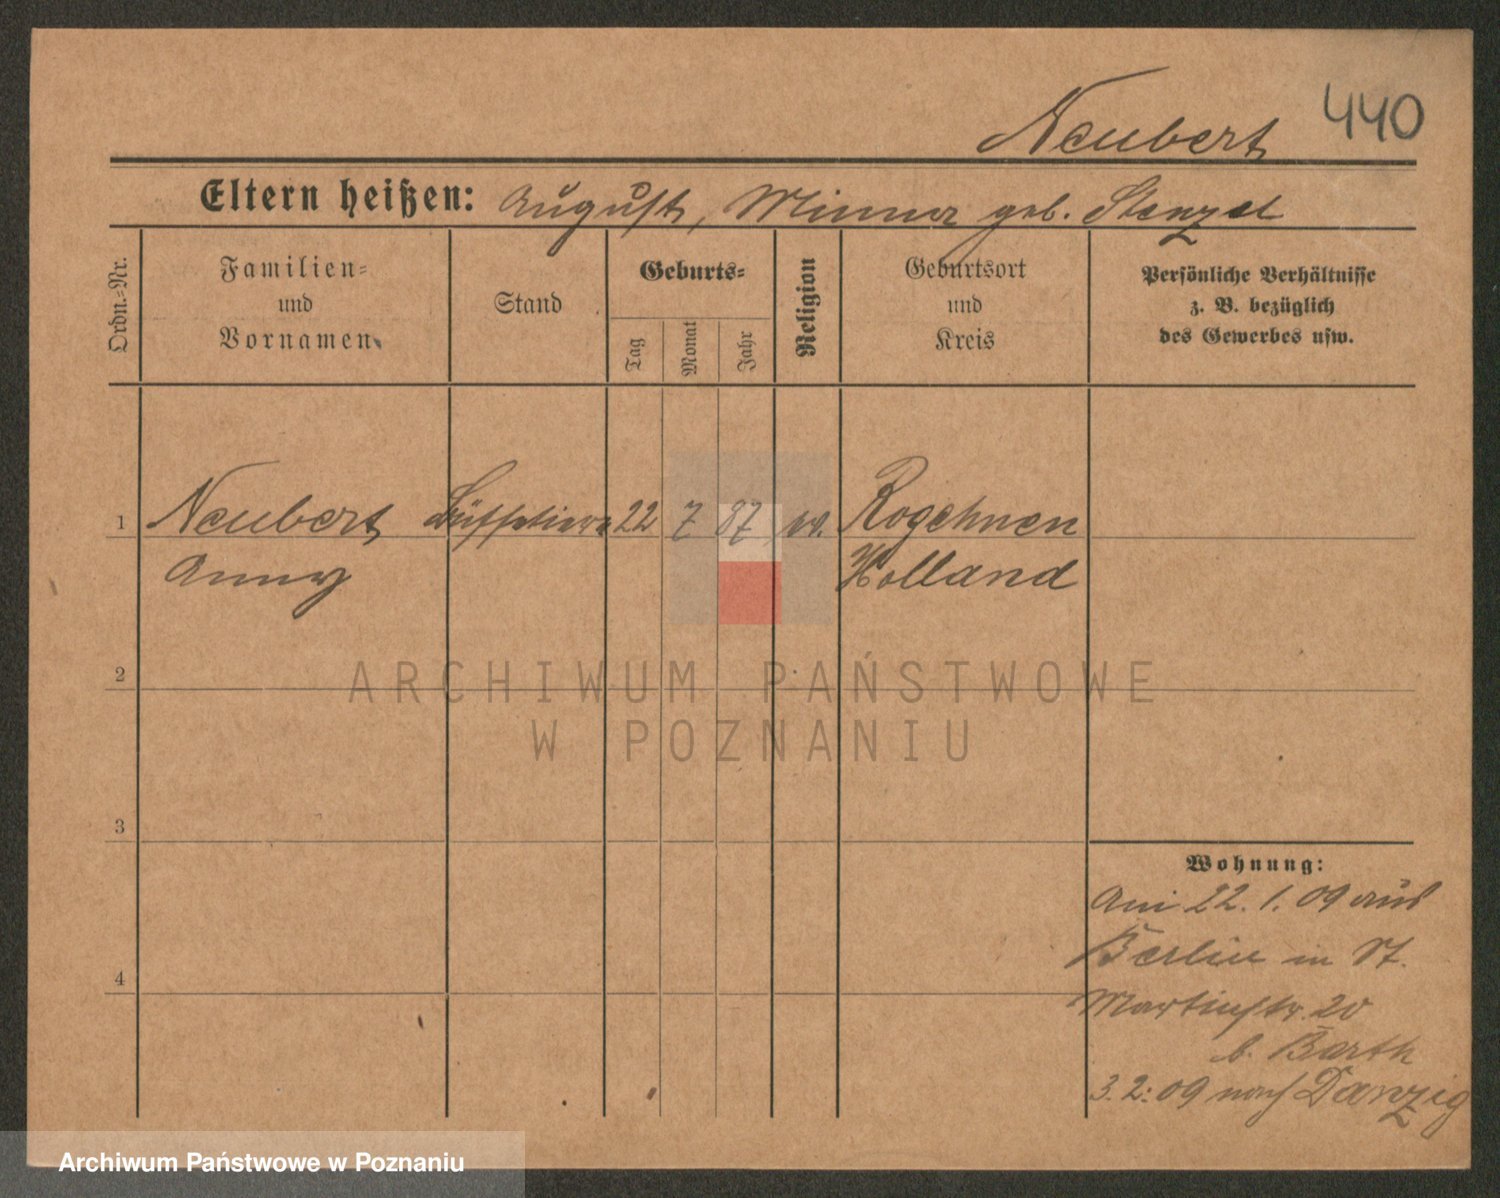 440
Neubert
Eltern heißen: August, Minna geb. Stenzel
Ordn.=Nr.
Familien=
und
Vornamen
Stand
Geburts=
Tag
Monat
Jahr
Religion
Geburtsort
und
Kreis
Persönliche Verhältnisse
z. B. bezüglich
des Gewerbes usw.
1 Neubert Büffetiere 22 7 87 ev. Rogehnen
Anny Holland
2
3
4
Wohnung:
Am 22. 1. 09 aus
Berlin in St.
Martinstr. 20
b. Barth
3. 2. 09 nach Danzig
ARCHIWUM PAŃSTWOWE
W POZNANIU
Archiwum Państwowe w Poznaniu